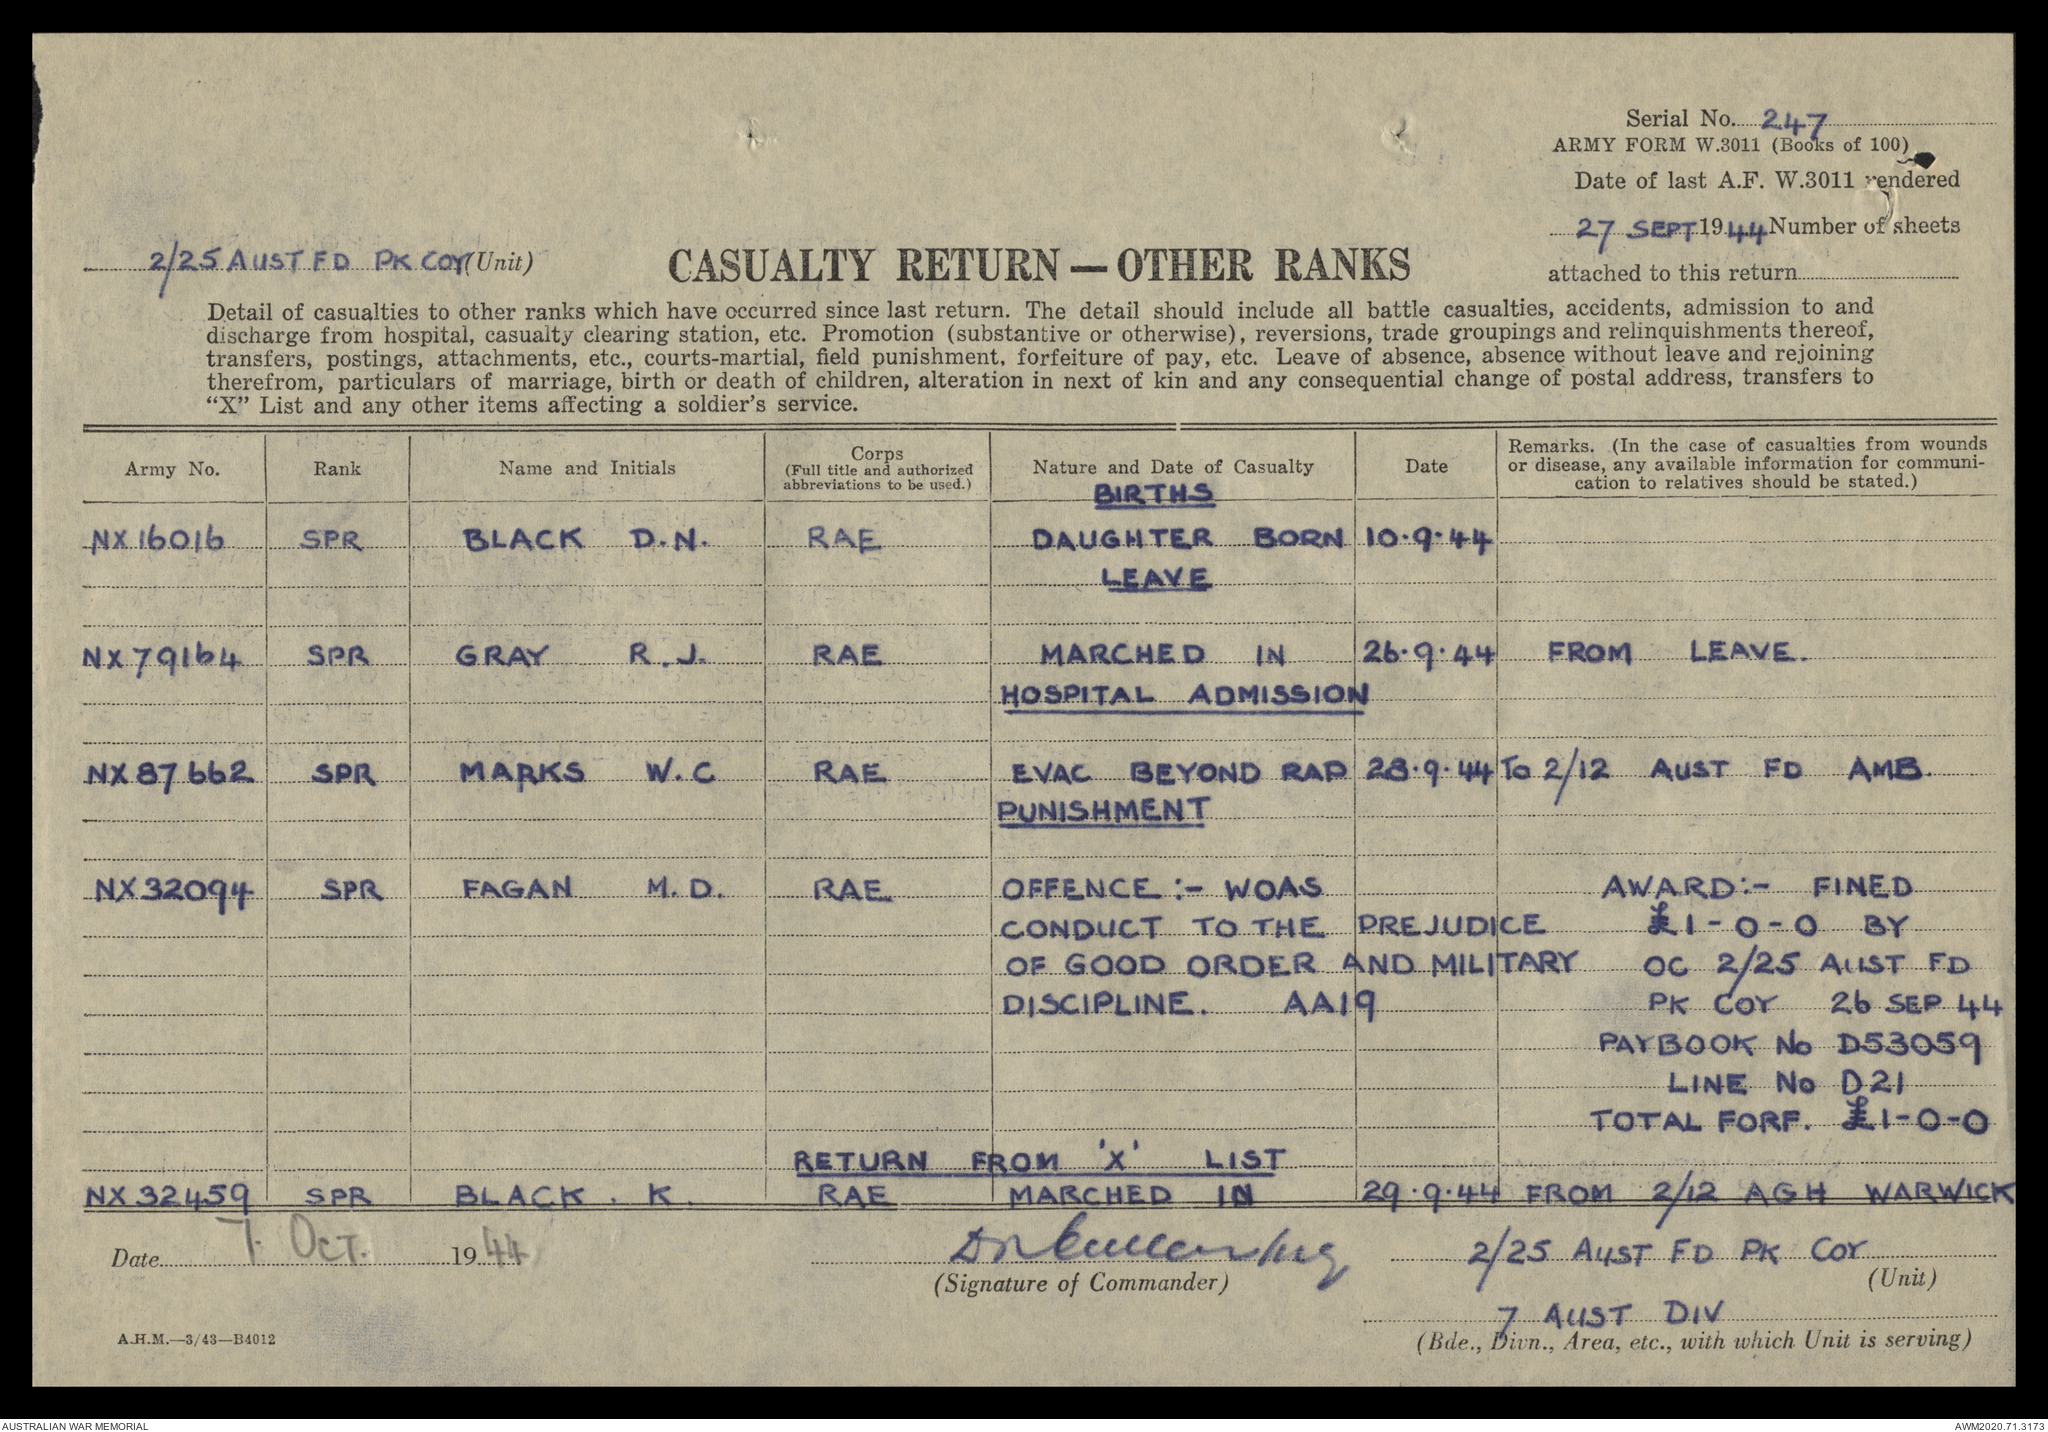 Serial No. 247
ARMY FORM W.3011 (Books of 100)
Date of last A.F. W.3011 rendered
27 SEPT 1944 Number of sheets
attached to this return
2/25 AUST FD PK COY (Unit)
CASUALTY RETURN — OTHER RANKS
Detail of casualties to other ranks which have occurred since last return. The detail should include all battle casualties, accidents, admission to and
discharge from hospital, casualty clearing station, etc. Promotion (substantive or otherwise), reversions, trade groupings and relinquishments thereof,
transfers, postings, attachments, etc., courts-martial, field punishment, forfeiture of pay, etc. Leave of absence, absence without leave and rejoining
therefrom, particulars of marriage, birth or death of children, alteration in next of kin and any consequential change of postal address, transfers to
"X" List and any other items affecting a soldier's service.
Army No. Rank Name and Initials Corps (Full title and authorized abbreviations to be used.) Nature and Date of Casualty Date Remarks. (In the case of casualties from wounds or disease, any available information for communi- cation to relatives should be stated.)
BIRTHS
NX16016 SPR BLACK D.N. RAE DAUGHTER BORN 10.9.44
LEAVE
NX79164 SPR GRAY R.J. RAE MARCHED IN 26.9.44 FROM LEAVE.
HOSPITAL ADMISSION
NX87662 SPR MARKS W.C RAE EVAC BEYOND RAP 28.9.44 TO 2/12 AUST FD AMB.
PUNISHMENT
NX32094 SPR FAGAN M.D. RAE OFFENCE:- WOAS AWARD:- FINED
CONDUCT TO THE PREJUDICE £1-0-0 BY
OF GOOD ORDER AND MILITARY OC 2/25 AUST FD
DISCIPLINE. AA19 PK COY 26 SEP 44
PAYBOOK No D53059
LINE No D21
TOTAL FORF. £1-0-0
RETURN FROM 'X' LIST
NX32459 SPR BLACK. K. RAE MARCHED IN 29.9.44 FROM 2/12 AGH WARWICK
Date 7. OCT. 1944
(Signature of Commander)
2/25 AUST FD PK COY
(Unit)
7 AUST DIV
(Bde., Divn., Area, etc., with which Unit is serving)
A.H.M.—3/43—B4012
AUSTRALIAN WAR MEMORIAL
AWM2020.71.3173